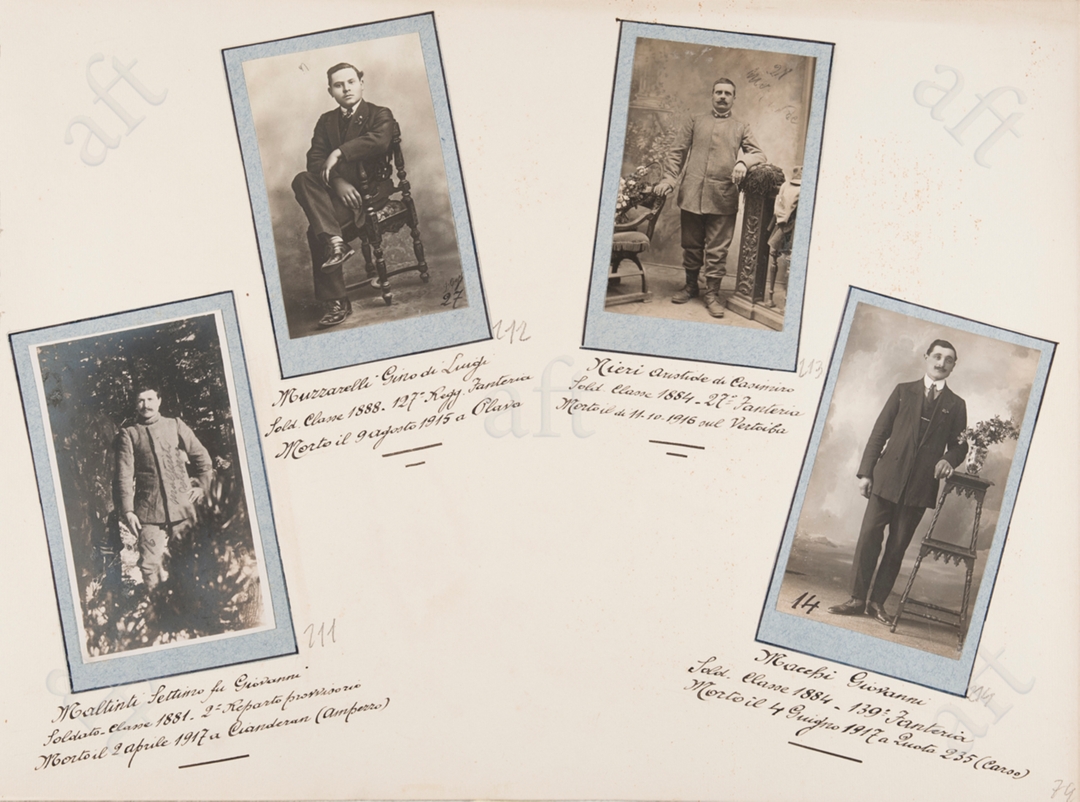 aft
aft
27
212
Muzzarelli Gino di Luigi
Sold. Classe 1888 - 127º Regg. Fanteria
Morto il 9 agosto 1915 a Plava
213
Nieri Aristide di Casimiro
Sold. Classe 1884 - 27º Fanteria
Morto il dì 11-10-1916 sul Vertoiba
aft
211
Maltinti Settimo fu Giovanni
Soldato - Classe 1881 - 2º Reparto provvisorio
Morto il 2 aprile 1917 a Cuanderan (Ampezzo)
14
Macchi Giovanni
Sold. Classe 1884 - 139º Fanteria
Morto il 4 Giugno 1917 a Quota 235 (Carso)
aft
79